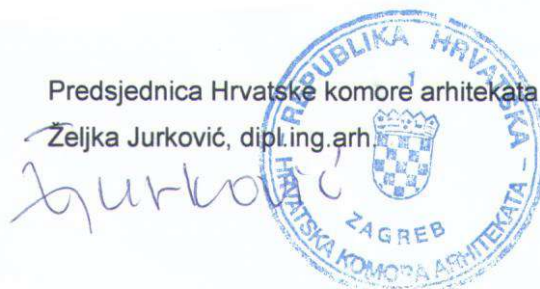 Predsjednica Hrvatske komore arhitekata
Željka Jurković, dipl.ing.arh.
Žjurković
REPUBLIKA HRVATSKA
1
HRVATSKA KOMORA ARHITEKATA –
ZAGREB